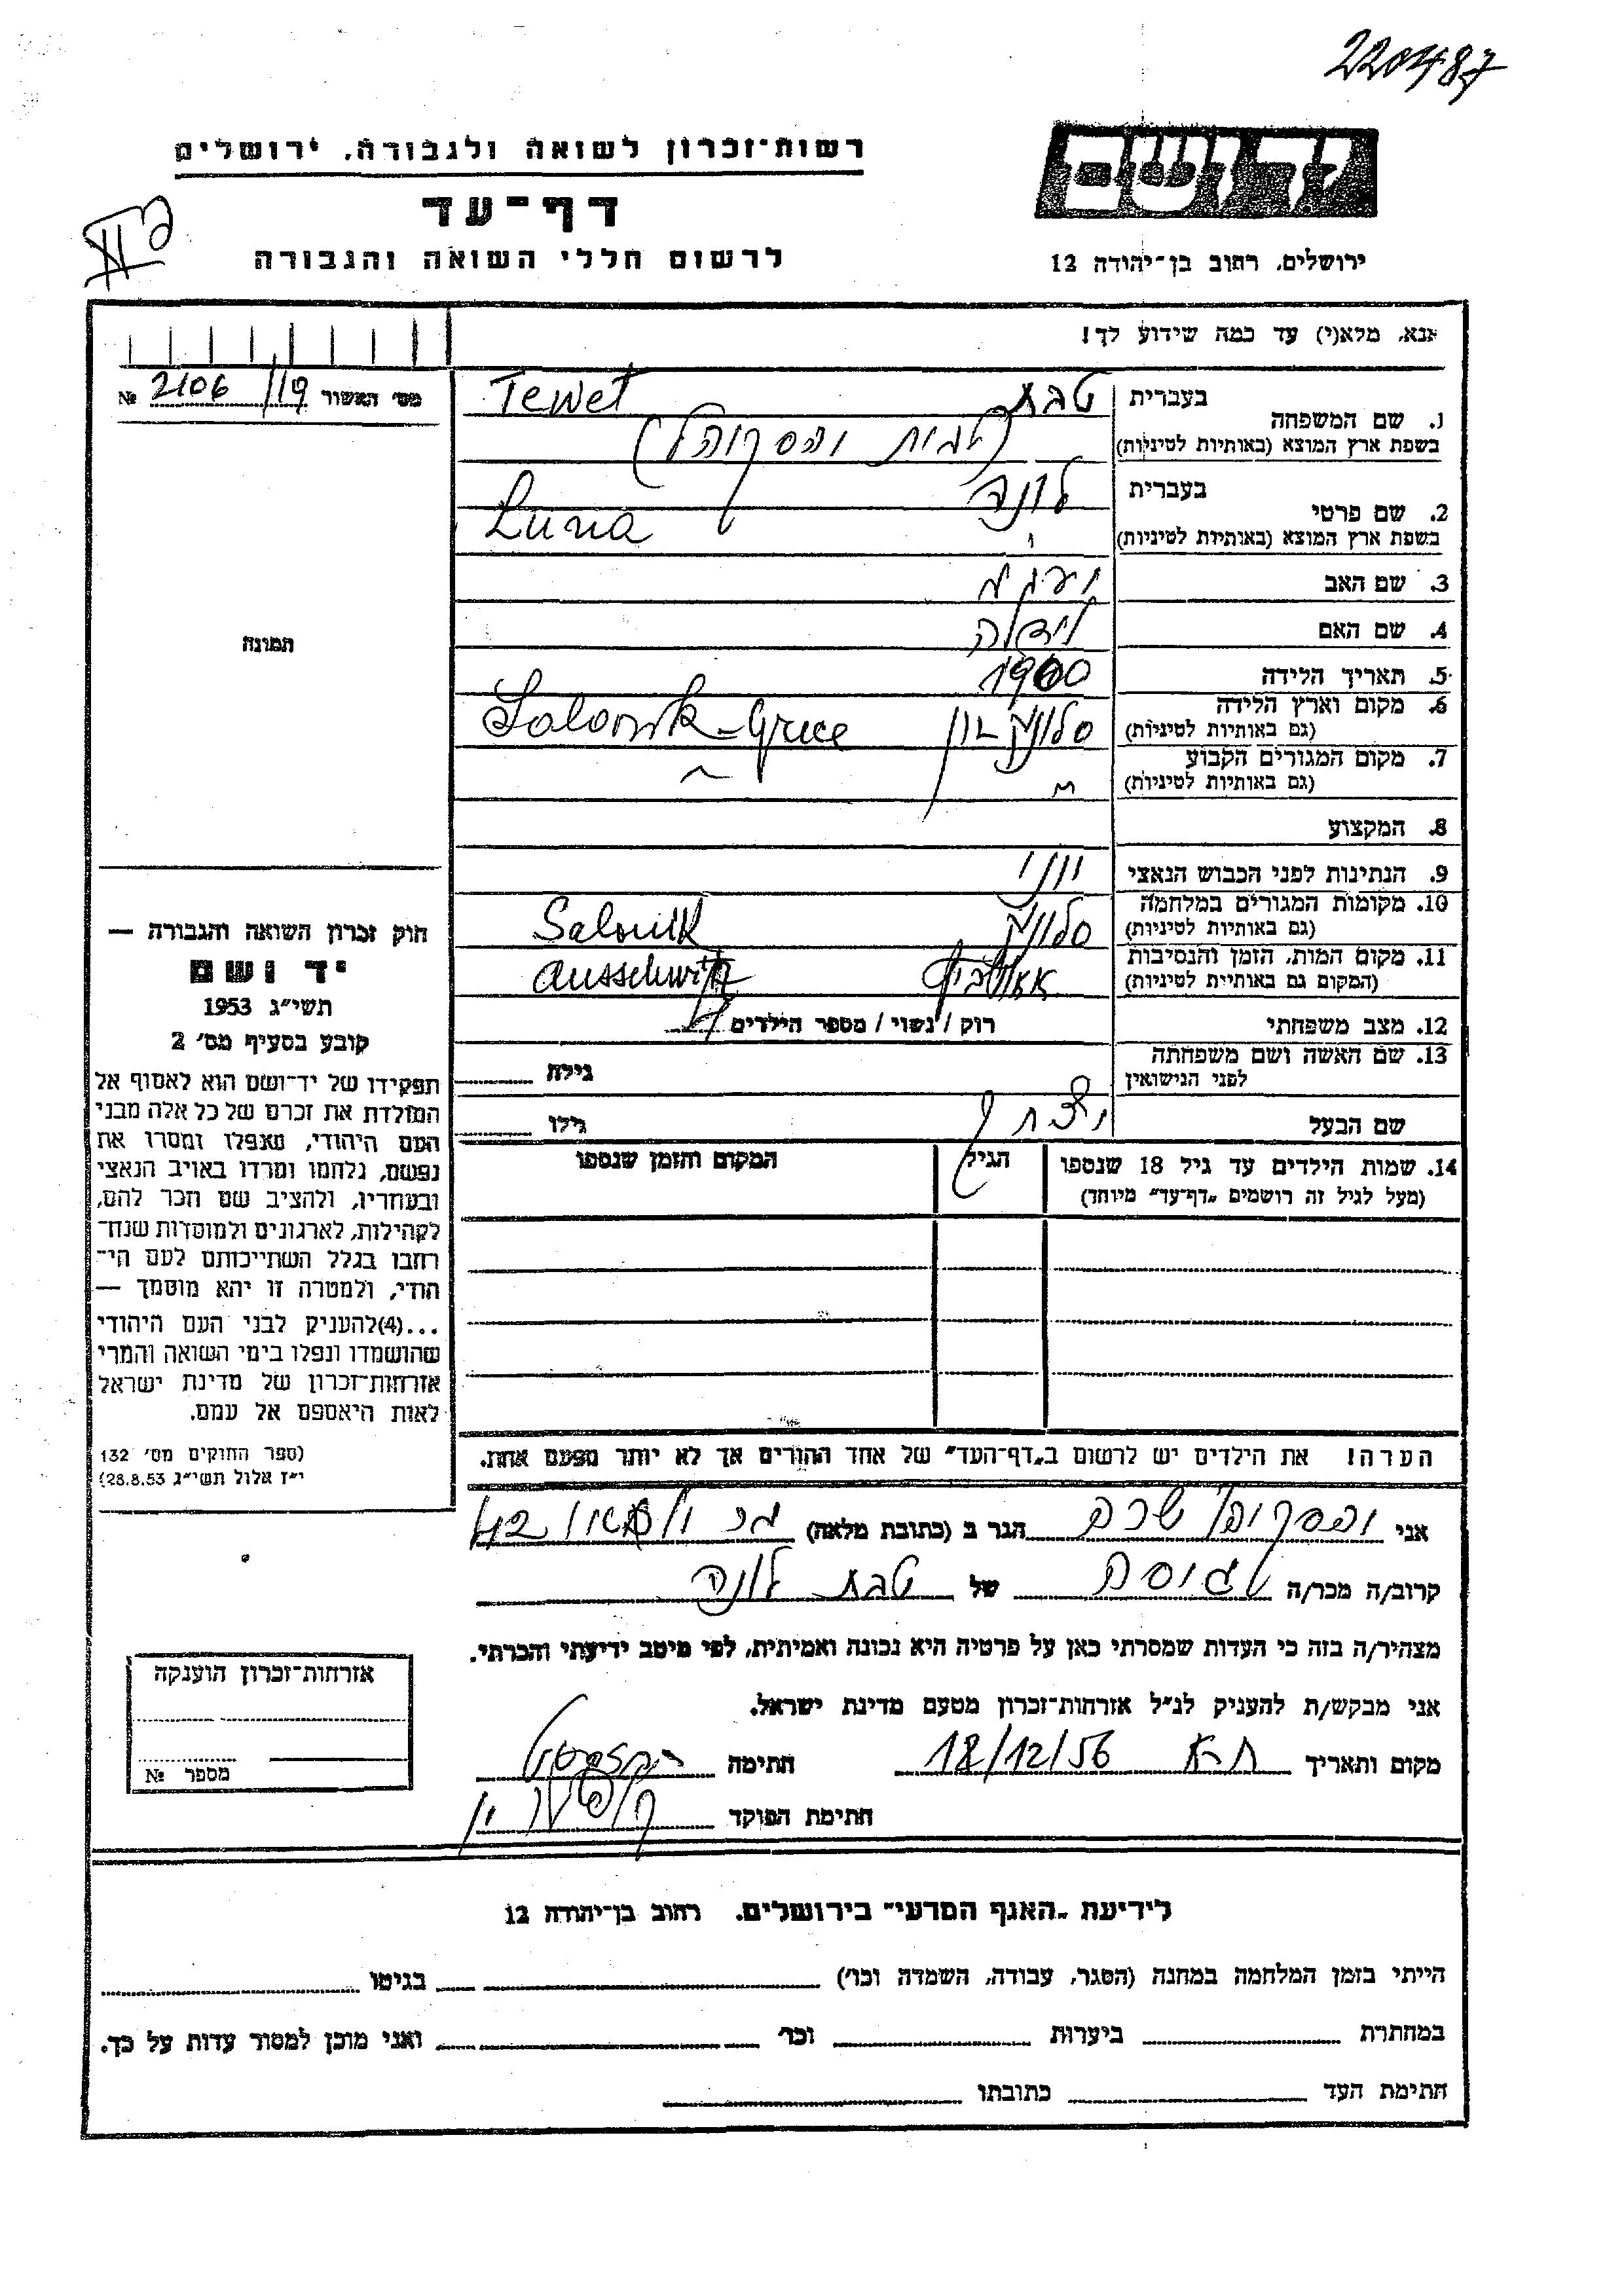 220487
ידושם
רשות-זכרון לשואה ולגבורה, ירושלים
דף-עד
לרשום חללי השואה והגבורה
ירושלים, רחוב בן-יהודה 12
אנא, מלא(י) עד כמה שידוע לך!
מס׳ האשור 2106/19 №
1. שם המשפחה בעברית טבת Tewet
בשפת ארץ המוצא (באותיות לטיניות)
2. שם פרטי בעברית לונה
בשפת ארץ המוצא (באותיות לטיניות) Luna
3. שם האב
4. שם האם
5. תאריך הלידה 1900
6. מקום וארץ הלידה סלוניקי יון Salonik - Grece
(גם באותיות לטיניות)
7. מקום המגורים הקבוע
(גם באותיות לטיניות)
8. המקצוע
9. הנתינות לפני הכבוש הנאצי יוני
10. מקומות המגורים במלחמה סלוניקי Salonik
(גם באותיות לטיניות)
11. מקום המות, הזמן והנסיבות אאושביץ Ausschwitz
(המקום גם באותיית לטיניות)
12. מצב משפחתי רוק / נשוי / מספר הילדים 4
13. שם האשה ושם משפחתה
לפני הנישואין
גילה
שם הבעל יצחק גילו
14. שמות הילדים עד גיל 18 שנספו הגיל המקום והזמן שנספו
(מעל לגיל זה רושמים „דף-עד״ מיוחד)
תמונה
חוק זכרון השואה והגבורה —
יד ושם
תשי״ג 1953
קובע בסעיף מס׳ 2
תפקידו של יד-ושם הוא לאסוף אל
המולדת את זכרם של כל אלה מבני
העם היהודי, שנפלו ומסרו את
נפשם, נלחמו ומרדו באויב הנאצי
ובעוזריו, ולהציב שם וזכר להם,
לקהילות, לארגונים ולמוסדות שנח-
רבו בגלל השתייכותם לעם הי-
הודי, ולמטרה זו יהא מוסמך —
...(4)להעניק לבני העם היהודי
שהושמדו ונפלו בימי השואה והמרי
אזרחות-זכרון של מדינת ישראל
לאות היאספם אל עמם.
(ספר החוקים מס׳ 132
י״ז אלול תשי״ג 28.8.53)
הערה! את הילדים יש לרשום ב„דף-העד״ של אחד ההורים אך לא יותר מפעם אחת.
אני שרה הגר ב (כתובת מלאה) 42
קרוב/ה מכר/ה גיסה של טבת לונה
מצהיר/ה בזה כי העדות שמסרתי כאן על פרטיה היא נכונה ואמיתית, לפי מיטב ידיעתי והכרתי.
אני מבקש/ת להעניק לנ״ל אזרחות-זכרון מטעם מדינת ישראל.
מקום ותאריך ת-א 18/12/56 חתימה
חתימת הפוקד
אזרחות-זכרון הוענקה
מספר №
לידיעת „האגף המדעי״ בירושלים, רחוב בן-יהודה 12
הייתי בזמן המלחמה במחנה (הסגר, עבודה, השמדה וכו׳) בגיטו
במחתרת ביערות וכו׳ ואני מוכן למסור עדות על כך.
חתימת העד כתובתו